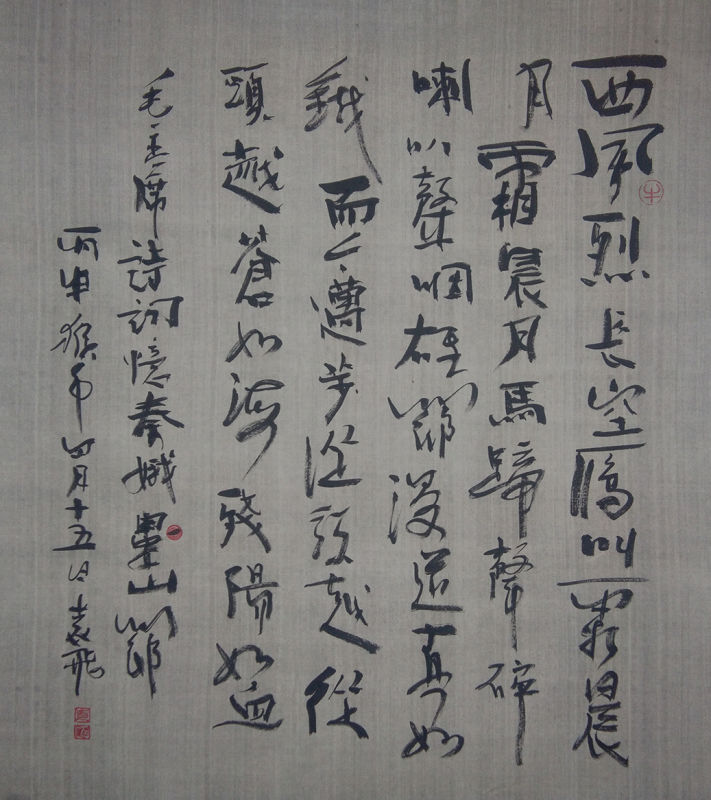 西風烈長空鴈叫霜晨
月霜晨月馬蹄聲碎
喇叭聲咽雄關漫道真如
鐵而今邁步從頭越從
頭越蒼如海殘陽如血
毛主席詩詞憶秦娥婁山關
丙申猴年四月十五日袁飛